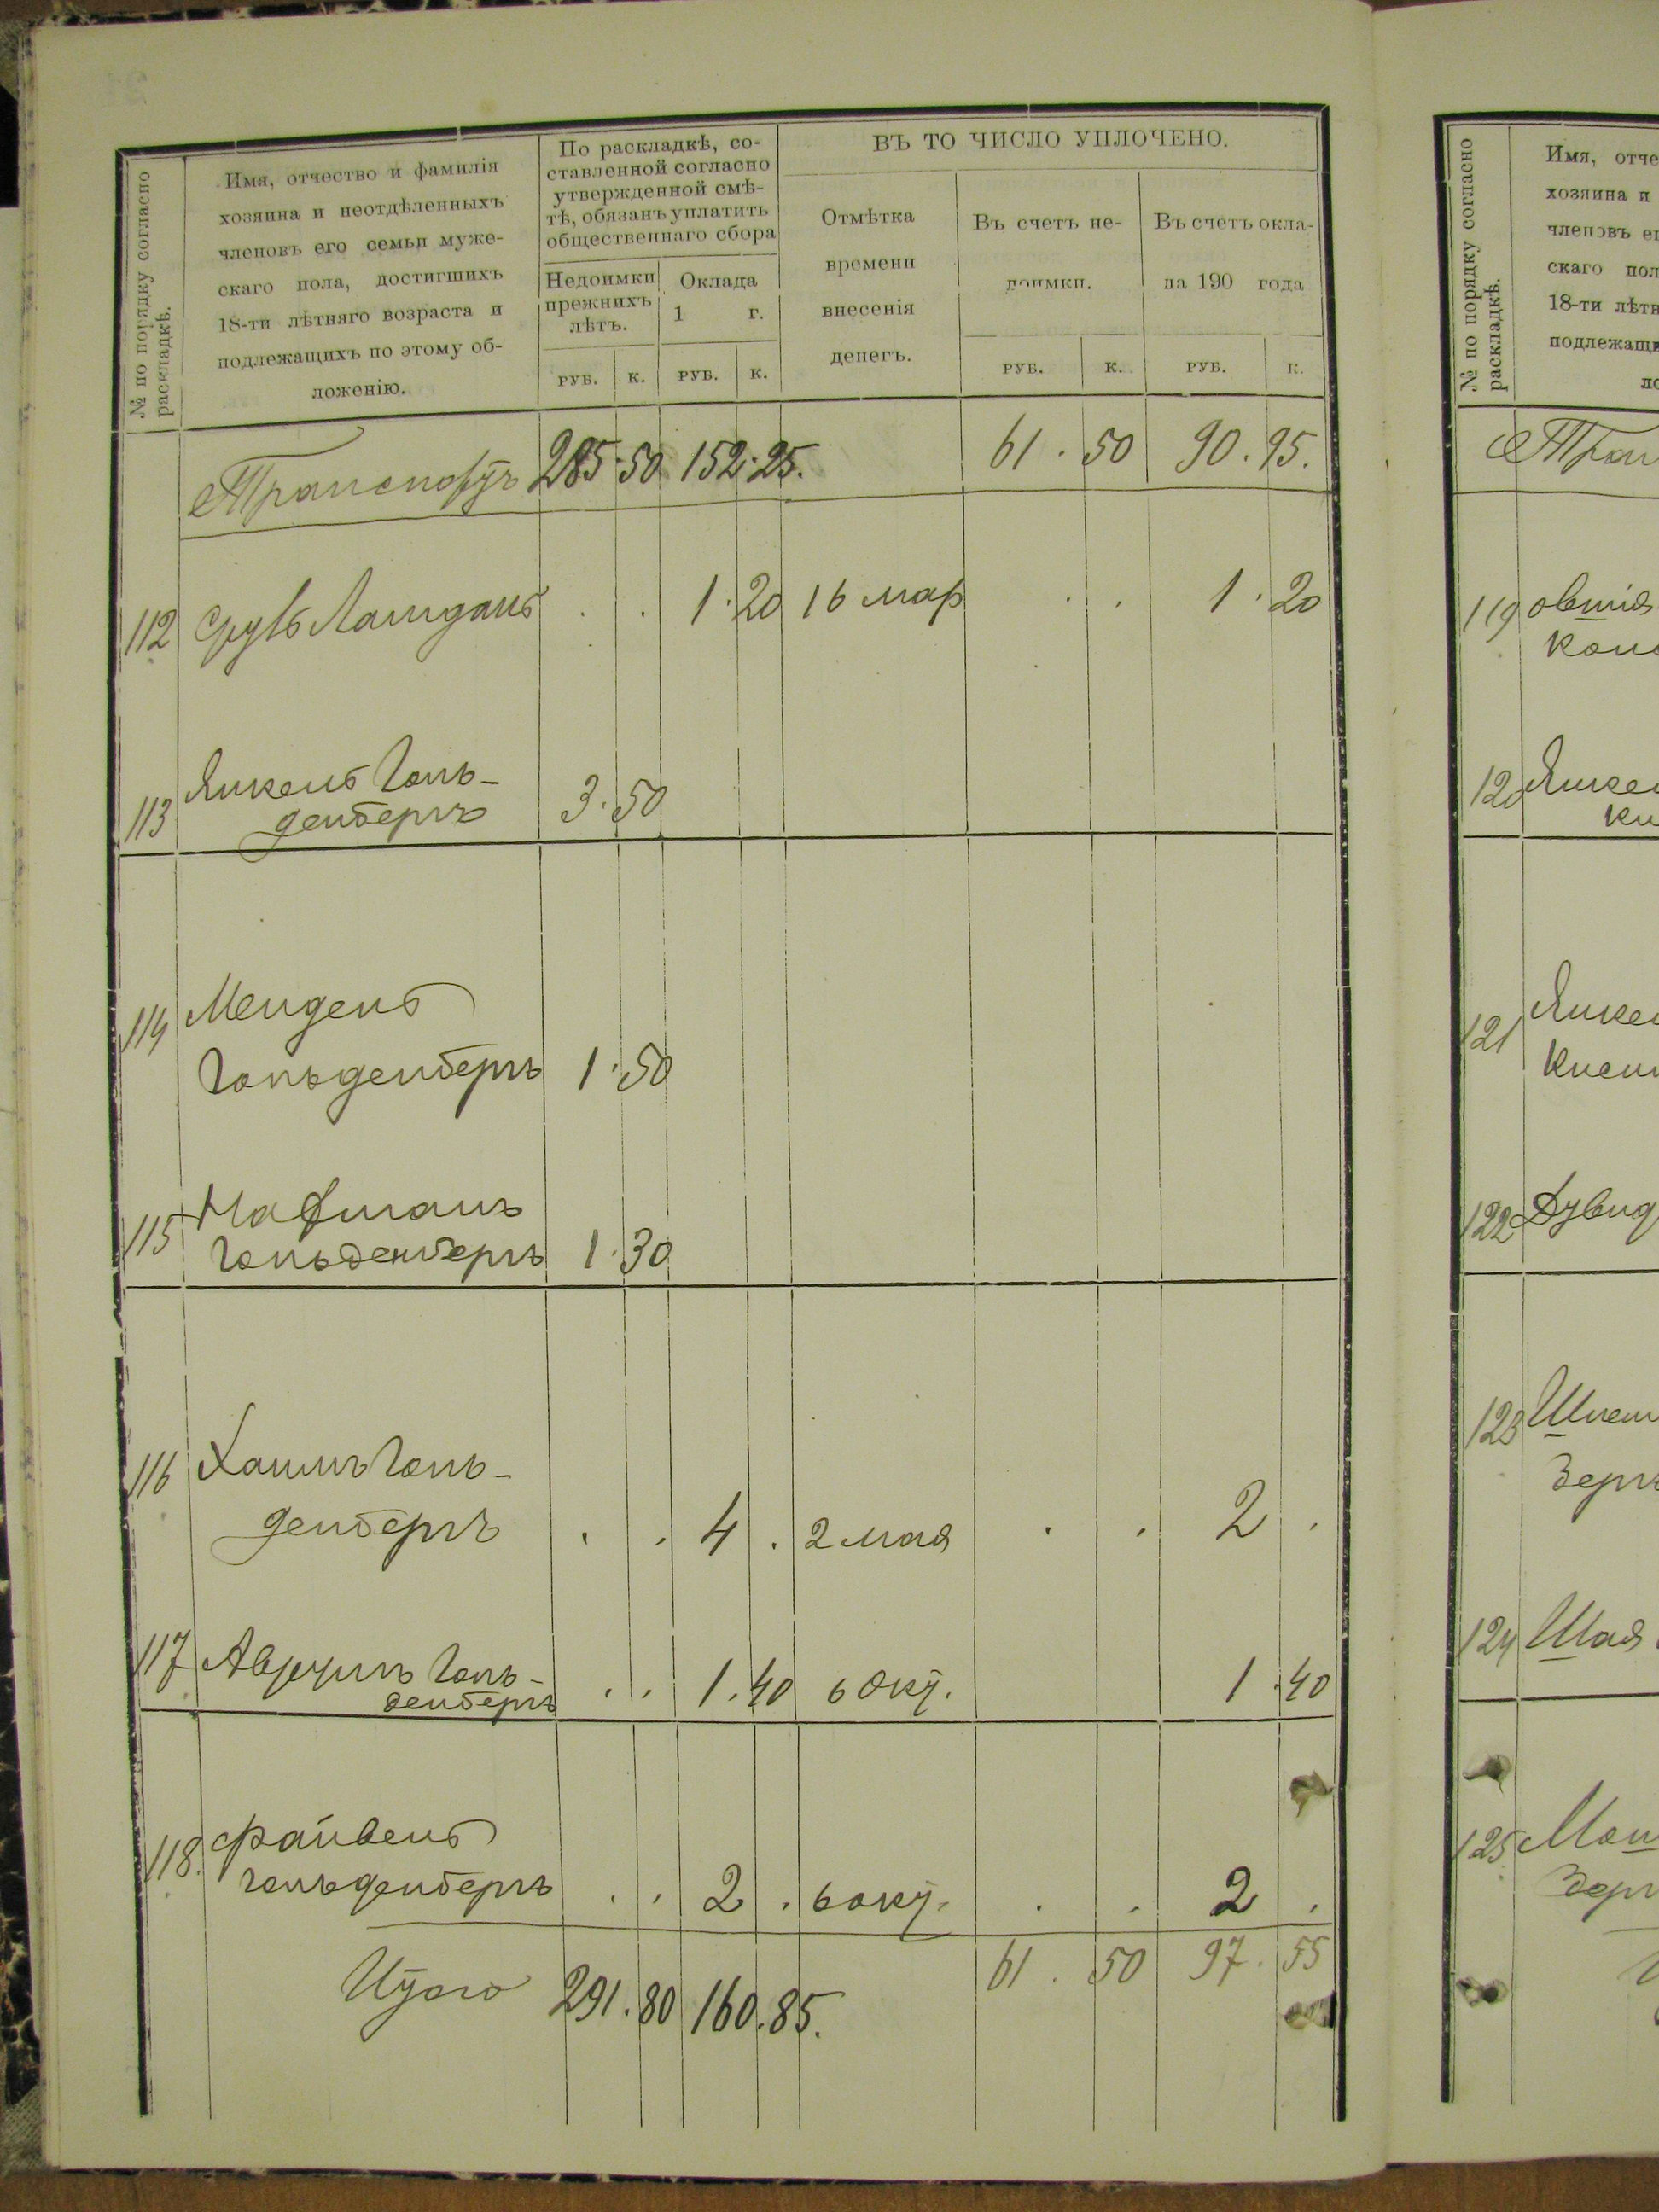 № по порядку согласно
раскладкѣ.
Имя, отчество и фамилія
хозяина и неотдѣленныхъ
членовъ его семьи муже-
скаго пола, достигшихъ
18-ти лѣтняго возраста и
подлежащихъ по этому об-
ложенію.
По раскладкѣ, со-
ставленной согласно
утвержденной смѣ-
тѣ, обязанъ уплатить
общественнаго сбора
Недоимки
прежнихъ
лѣтъ.
Оклада
1 г.
РУБ. К. РУБ. К.
ВЪ ТО ЧИСЛО УПЛОЧЕНО.
Отмѣтка
времени
внесенія
денегъ.
Въ счетъ не-
доимки.
Въ счетъ окла-
да 190 года
РУБ. К. РУБ. К.
Транспортъ 285.50 152.25. 61.50 90.95.
112 Ламданъ . . 1.20 16 мар . . 1.20
113 Янкель Голь-
денбергъ 3.50
114 Мендель
Гольденбергъ 1.50
115 Нафманъ
Гольденбергъ 1.30
116 Хаимъ Голь-
денбергъ . . 4 . 2 мая . . 2 .
117 Аврумъ Голь-
денбергъ . . 1.40 6 Окт. 1.40
118. Файвель
Гольденбергъ . . 2 . 6 окт. . . 2 .
Итого 291.80 160.85. 61.50 97.55
№ по порядку согласно
раскладкѣ.
Имя, отче
хозяина и
членовъ ег
скаго пол
18-ти лѣтн
подлежащи
ло
Тран
119 Овшія
120 Янкел
121 Янкел
122 Дувид
123
Зерг
124 Шая
125 Мош
Зерг